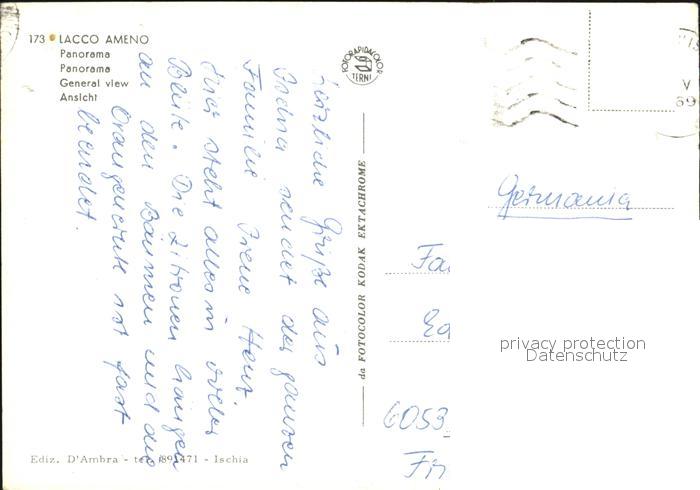 173 LACCO AMENO
Panorama
Panorama
General view
Ansicht
FOTORAPIDACOLOR
TERNI
Herzliche Grüße aus
Ischia sendet der ganzen
Familie Irene Hanz.
Hier steht alles in voller
Blüte. Die Zitronen hängen
an den Bäumen und die
Orangenernte ist fast
beendet.
da FOTOCOLOR KODAK EKTACHROME
Germania
Fa
6053
privacy protection
Datenschutz
Ediz. D'Ambra - tel. 891471 - Ischia
69